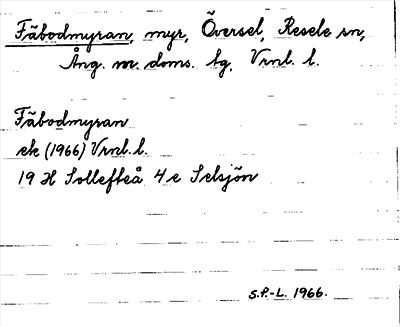 Fäbodmyran, myr, Översel, Resele sn,
Ång. m. doms. lg, Vrnl. l.
Fäbodmyran
ek (1966) Vrnl. l.
19 H Sollefteå 4 e Selsjön
S.P.-L. 1966.